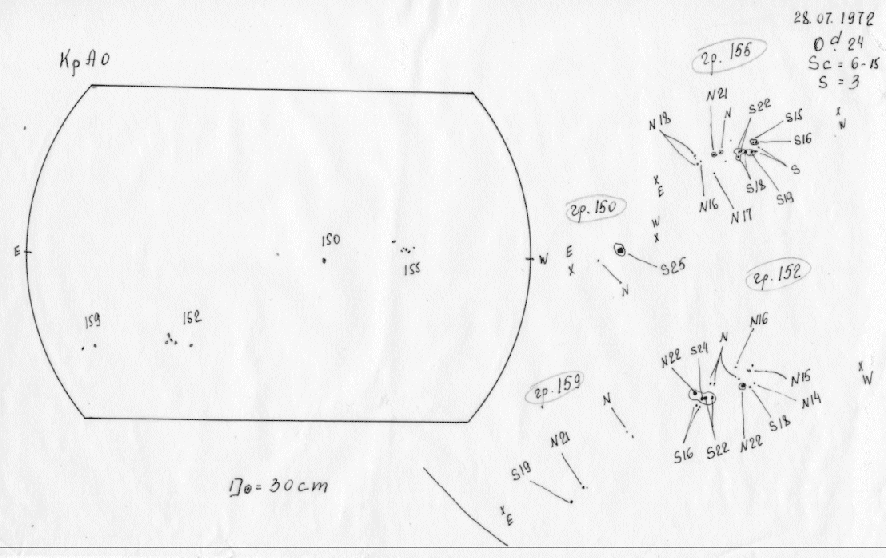 28.07.1972
0ᵈ.24
Sc = 6-15
S = 3
КрАО
гр. 155
N21
N
S22
S15
S16
N18
S
S18
S19
N16
N17
x
W
x
E
гр. 150
W
x
E
x
S25
N
E
150
155
W
159
152
гр. 152
N16
N
N22
S24
N15
N14
S18
S16
S22
N22
x
W
гр. 159
N
N21
S19
x
E
D⊙ = 30 cm